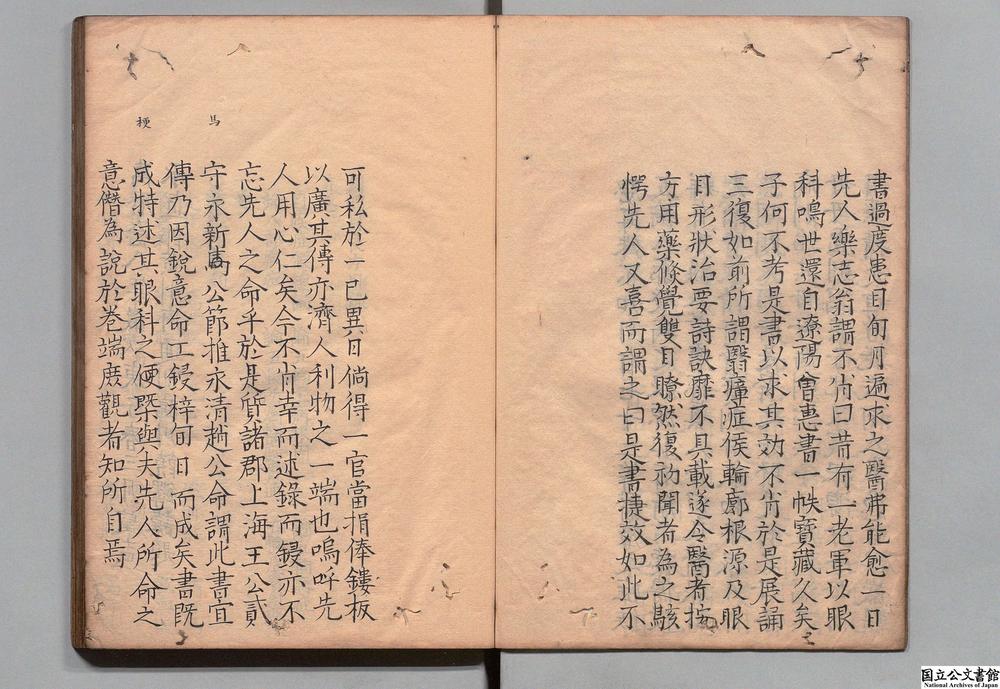 書過度患目旬月遍求之醫弗能愈一日
先人樂志翁謂不肖曰昔有一老軍以眼
科鳴世還自遼陽會惠書一帙寶藏久矣
子何不考是書以求其効不肖於是展誦
三復如前所謂翳瘴症候輪廓根源及眼
目形狀治要詩訣靡不具載遂令醫者按
方用藥倏覺雙目瞭然復初聞者為之駭
愕先人又喜而謂之曰是書捷效如此不
可私於一已異日倘得一官當捐俸鏤板
以廣其傳亦濟人利物之一端也嗚呼先
人用心仁矣今不肖幸而述錄而鋟亦不
忘先人之命乎於是質諸郡上海王公貳
守永新馬公節推永清趙公命謂此書宜
傳乃因銳意命工鋟梓旬日而成矣書既
成特述其眼科之便槩與夫先人所命之
意僭為說於卷端庻觀者知所自焉
馬
梗
国立公文書館
National Archives of Japan